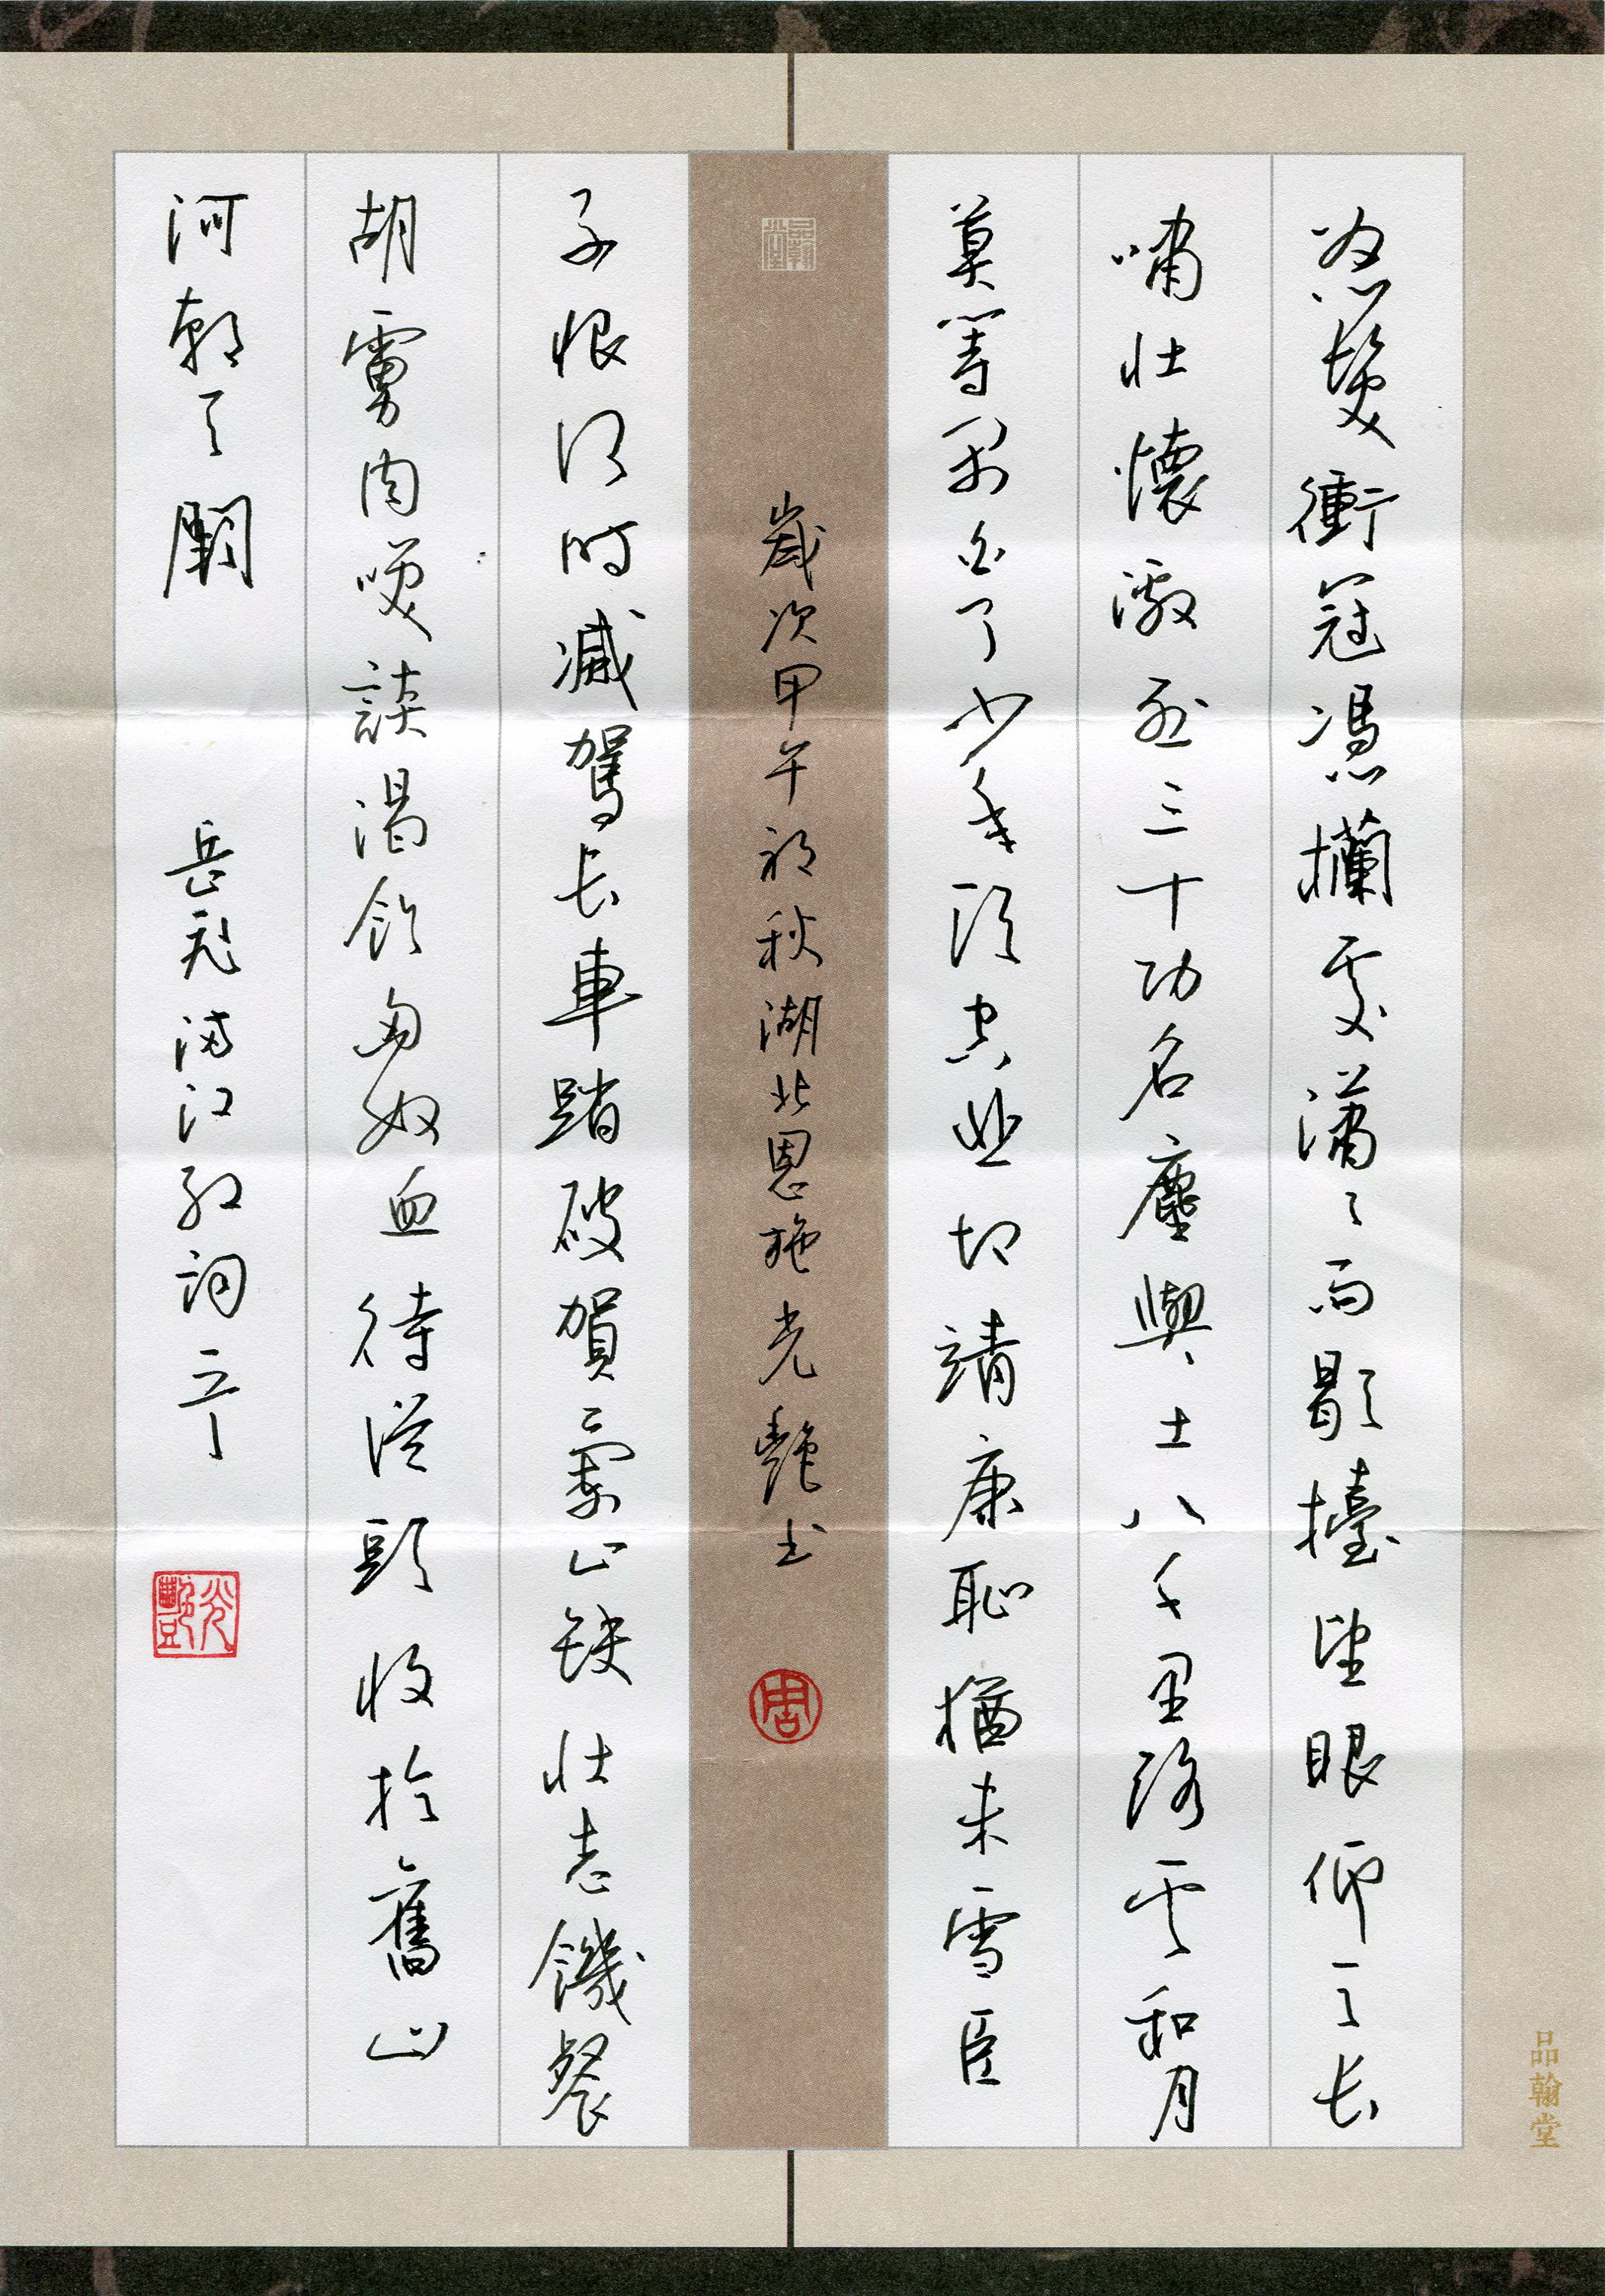 怒髮衝冠憑欄處瀟々雨歇擡望眼仰天長
嘯壯懷激烈三十功名塵與土八千里路雲和月
莫等閑白了少年頭空悲切靖康恥猶未雪臣
歲次甲午初秋湖北恩施光艷書
周
子恨何時滅駕長車踏破賀蘭山缺壯志饑餐
胡虜肉笑談渴飲匈奴血待從頭收拾舊山
河朝天闕 岳飛滿江紅詞
光豔
品翰堂
品翰堂